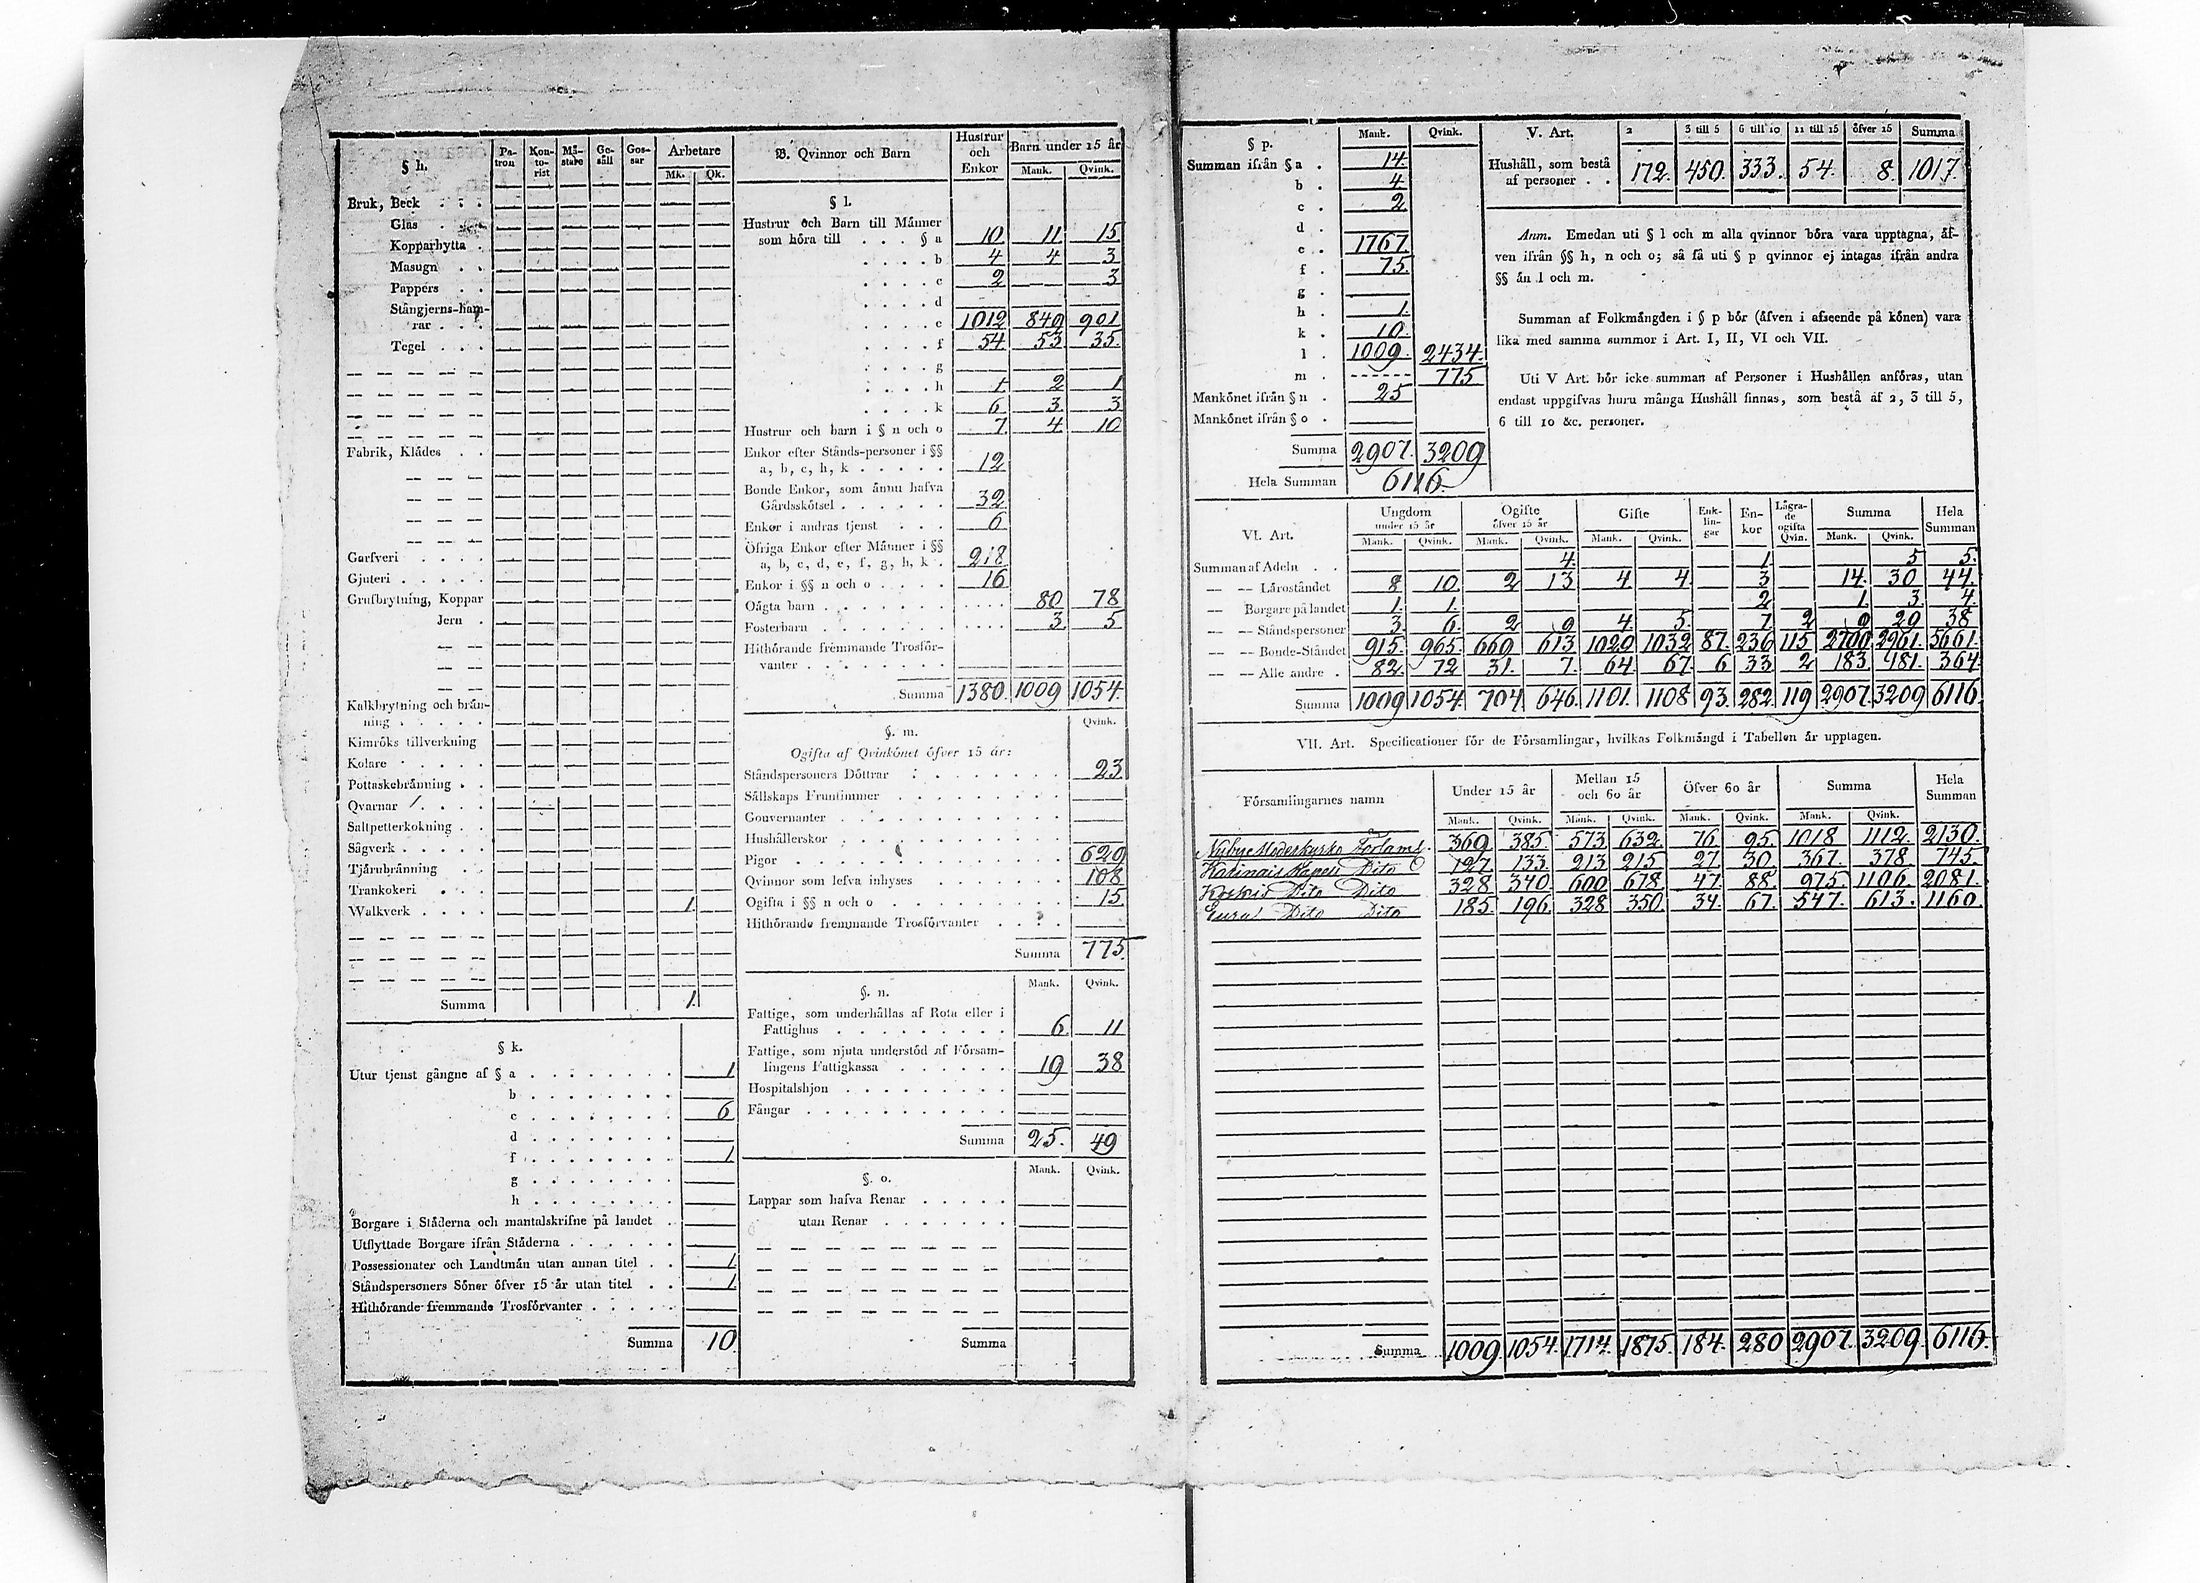 § h.
Pa-
tron
Kon-
to-
rist
Mä-
stare
Ge-
säll
Gos-
sar
Arbetare
Mk. Qk.
Bruk, Beck . . .
Glas . .
Kopparhytta .
Masugn . .
Pappers . .
Stångjerns-ham-
rar . . .
Tegel . . .
Fabrik, Klädes . .
Garfveri . . . .
Gjuteri . . . . .
Grufbrytning, Koppar
Jern .
Kalkbrytning och brän-
ning . . . . .
Kimröks tillverkning
Kolare . . . . .
Pottaskebränning . .
Qvarnar . . . .
Saltpetterkokning . .
Sågverk . . . . .
Tjärubränning . .
Trankokeri . . .
Walkverk . . . . 1.
Summa 1.
§ k.
Utur tjenst gångne af § a . . . . . . . 1
b . . . . . . .
c . . . . . . . 6
d . . . . . . .
f . . . . . . . 1
g . . . . . . .
h . . . . . . .
Borgare i Städerna och mantalskrifne på landet .
Utflyttade Borgare ifrån Städerna . . . . . .
Possessionater och Landtmän utan annan titel . . 1.
Ståndspersoners Söner öfver 15 år utan titel . . 1
Hithörande fremmande Trosförvanter . . . . .
Summa 10
B. Qvinnor och Barn
Hustrur
och
Enkor
Barn under 15 år
Mank. Qvink.
§ l.
Hustrur och Barn till Männer
som höra till . . . § a 10 11 15
. . . . b 4 4 3
. . . . c 2 3
. . . . d
. . . . e 1012 849 901
. . . . f 54 53 35.
. . . . g
. . . . h 1. 2 1
. . . . k 6 3 3
Hustrur och barn i § n och o 7. 4 10
Enkor efter Stånds-personer i §§
a, b, c, h, k . . . . . 12
Bonde Enkor, som ännu hafva
Gårdsskötsel . . . . . . 32
Enkor i andras tjenst . . . 6
Öfriga Enkor efter Männer i §§
a, b, c, d, e, f, g, h, k . 218
Enkor i §§ n och o . . . . 16
Oägta barn . . . . . . . . . . . 80 78
Fosterbarn . . . . . . . . . . . 3 5
Hithörande fremmande Trosför-
vanter . . . . . . . .
Summa 1380. 1009 1054.
§. m.
Qvink.
Ogifta af Qvinkönet öfver 15 år:
Ståndspersoners Döttrar . . . . . . . . 23
Sällskaps Fruntimmer . . . . . . . . .
Gouvernanter . . . . . . . . . . . .
Hushållerskor . . . . . . . . . . . .
Pigor . . . . . . . . . . . . . . 629
Qvinnor som lefva inhyses . . . . . . . 108
Ogifta i §§ n och o . . . . . . . . . . 15.
Hithörande fremmande Trosförvanter . . . .
Summa 775
§. n.
Mank. Qvink.
Fattige, som underhållas af Rota eller i
Fattighus . . . . . . . . . 6 11
Fattige, som njuta understöd af Försam-
lingens Fattigkassa . . . . . . 19 38
Hospitalshjon . . . . . . . . .
Fångar . . . . . . . . . . .
Summa 25. 49
§. o.
Mank. Qvink.
Lappar som hafva Renar . . . . .
utan Renar . . . . . . .
Summa
§ p.
Mank. Qvink.
Summan ifrån § a . 14.
b . 4
c . 2
d .
e . 1767.
f . 75.
g .
h . 1.
k . 10.
l . 1009. 2434.
m . 775
Mankönet ifrån § n . 25
Mankönet ifrån § o .
Summa 2907. 3209
Hela Summan 6116.
V. Art. 2 3 till 5 6 till 10 11 till 15 öfver 15 Summa
Hushåll, som bestå
af personer . . 172. 450. 333. 54. 8. 1017.
Anm. Emedan uti § l och m alla qvinnor böra vara upptagna, äf-
ven ifrån §§ h, n och o; så få uti § p qvinnor ej intagas ifrån andra
§§ än l och m.
Summan af Folkmängden i § p bör (äfven i afseende på könen) vara
lika med samma summor i Art. I, II, VI och VII.
Uti V Art. bör icke summan af Personer i Hushållen anföras, utan
endast uppgifvas huru många Hushåll finnas, som bestå af 2, 3 till 5,
6 till 10 &c. personer.
VI. Art.
Ungdom
under 15 år
Ogifte
öfver 15 år
Gifte
Enk-
lin-
gar
En-
kor
Lägra-
de
ogifta
Qvin.
Summa
Hela
Summan
Mank. Qvink. Mank. Qvink. Mank. Qvink. Mank. Qvink.
Summan af Adeln . . 4. 1. 5 5.
— — Läroståndet 8 10. 2 13 4 4. 3 14. 30 44.
— Borgare på landet 1. 1. 2 1. 3. 4.
— — Ståndspersoner 3. 6. 2 9 4. 5. 7. 2 9 29 38
— — Bonde-Ståndet 915. 965. 669 613 1029 1032 87. 236 115 2700 2961. 5661.
— — Alle andre . 82. 72 31. 7. 64 67. 6 33 2 183 181. 364
Summa 1009 1054. 704. 646. 1101. 1108. 93. 282. 119 2907. 3209 6116.
VII. Art. Specificationer för de Församlingar, hvilkas Folkmängd i Tabellen är upptagen.
Församlingarnes namn
Under 15 år
Mellan 15
och 60 år
Öfver 60 år
Summa
Hela
Summan
Mank. Qvink. Mank. Qvink. Mank. Qvink. Mank. Qvink.
Moderkyrko Förlaml. 369 385. 573 632. 76. 95. 1018 1112. 2130.
Dito 127 133 213 215. 27 30. 367. 378. 745.
Dito Dito 328 340 600 678. 47. 88. 975. 1106. 2081.
Eura Dito Dito 185. 196. 328 350. 34. 67. 547. 613. 1160.
Summa 1009. 1054. 1714. 1875. 184. 280 2907. 3209. 6116.